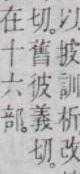 以披訓析改
切。舊彼義切。
在十六部。